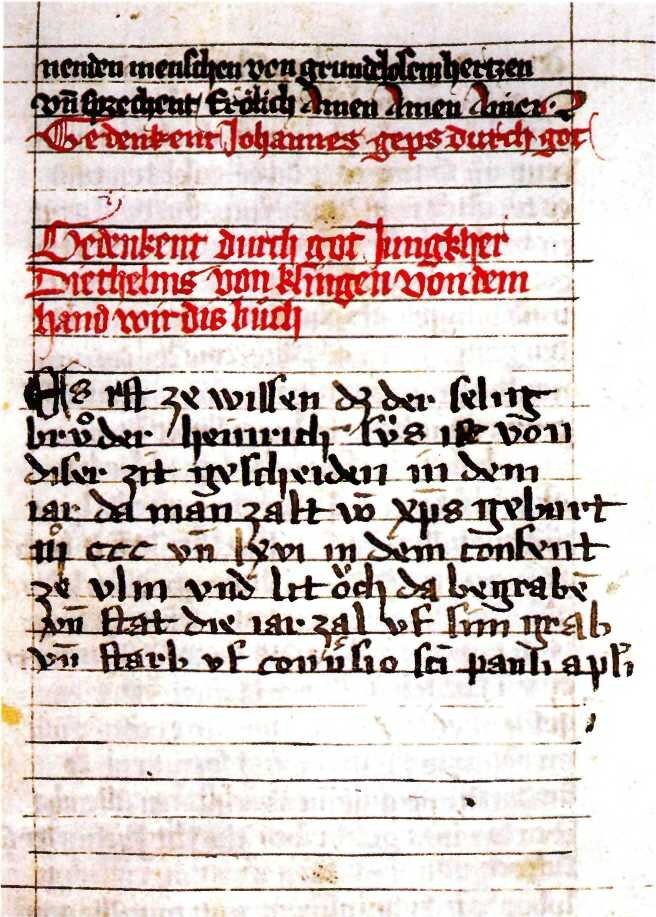 nenden menschen von grundlosem hertzen
vn̄ sprechent frölich Amen Amen Amen
Gedenkent Johannes geps durch got
Gedenkent durch got Jungkher
Diethelms von klingen von dem
hand wir dis buͦch
Es ist ze wissen dz der selig
bruͦder heinrich sṳ̈s ist von
diser zit gescheiden in dem
iar da man zalt vō xp̄s geburt
mͦ ccc vn̄ lxvi in dem confent
ze vlm vnd lit oͤch da begrabē
vn̄ stat die iar zal vf sim grab
vn̄ starb vf conu̓sio sc̄i pauli apl̓i